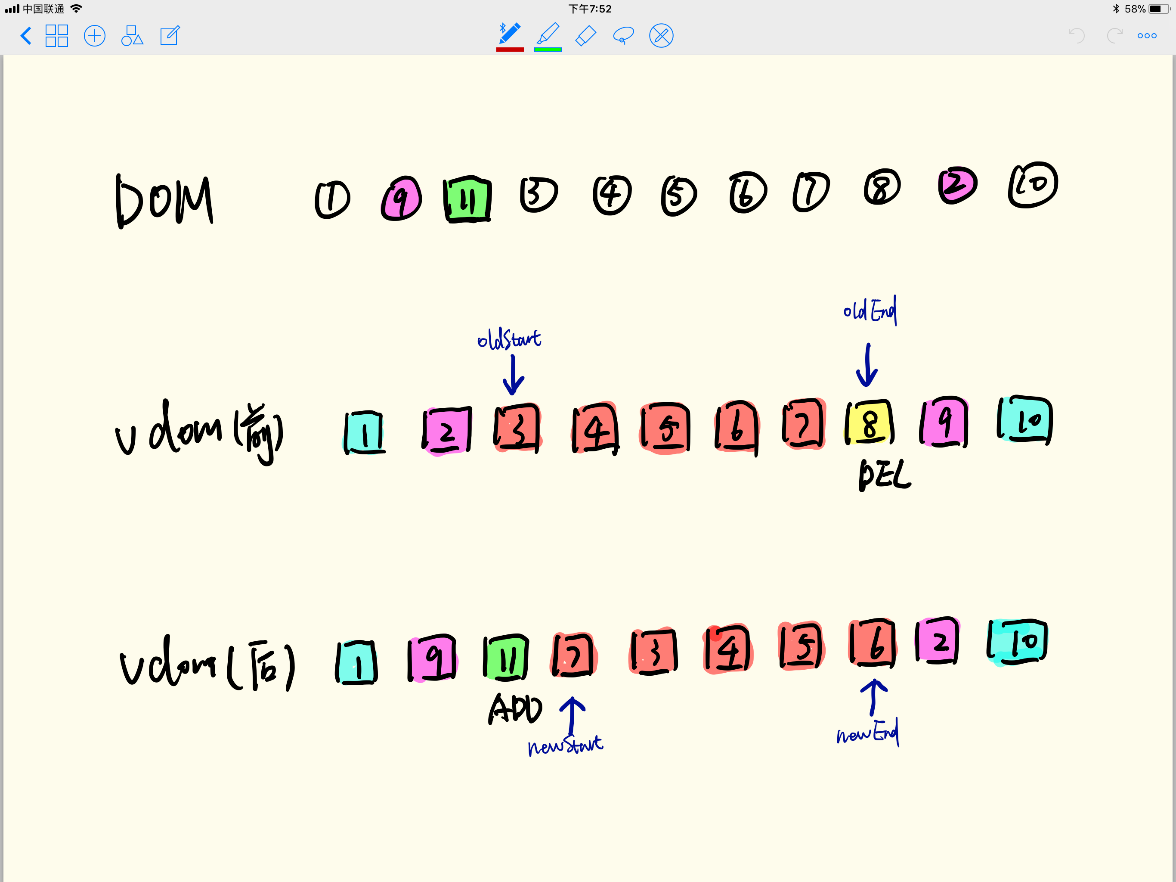 中国联通 下午7:52 58%
DOM 1 9 11 3 4 5 6 7 8 2 10
oldStart oldEnd
vdom(前) 1 2 3 4 5 6 7 8 9 10
DEL
vdom(后) 1 9 11 7 3 4 5 6 2 10
ADD
newStart newEnd